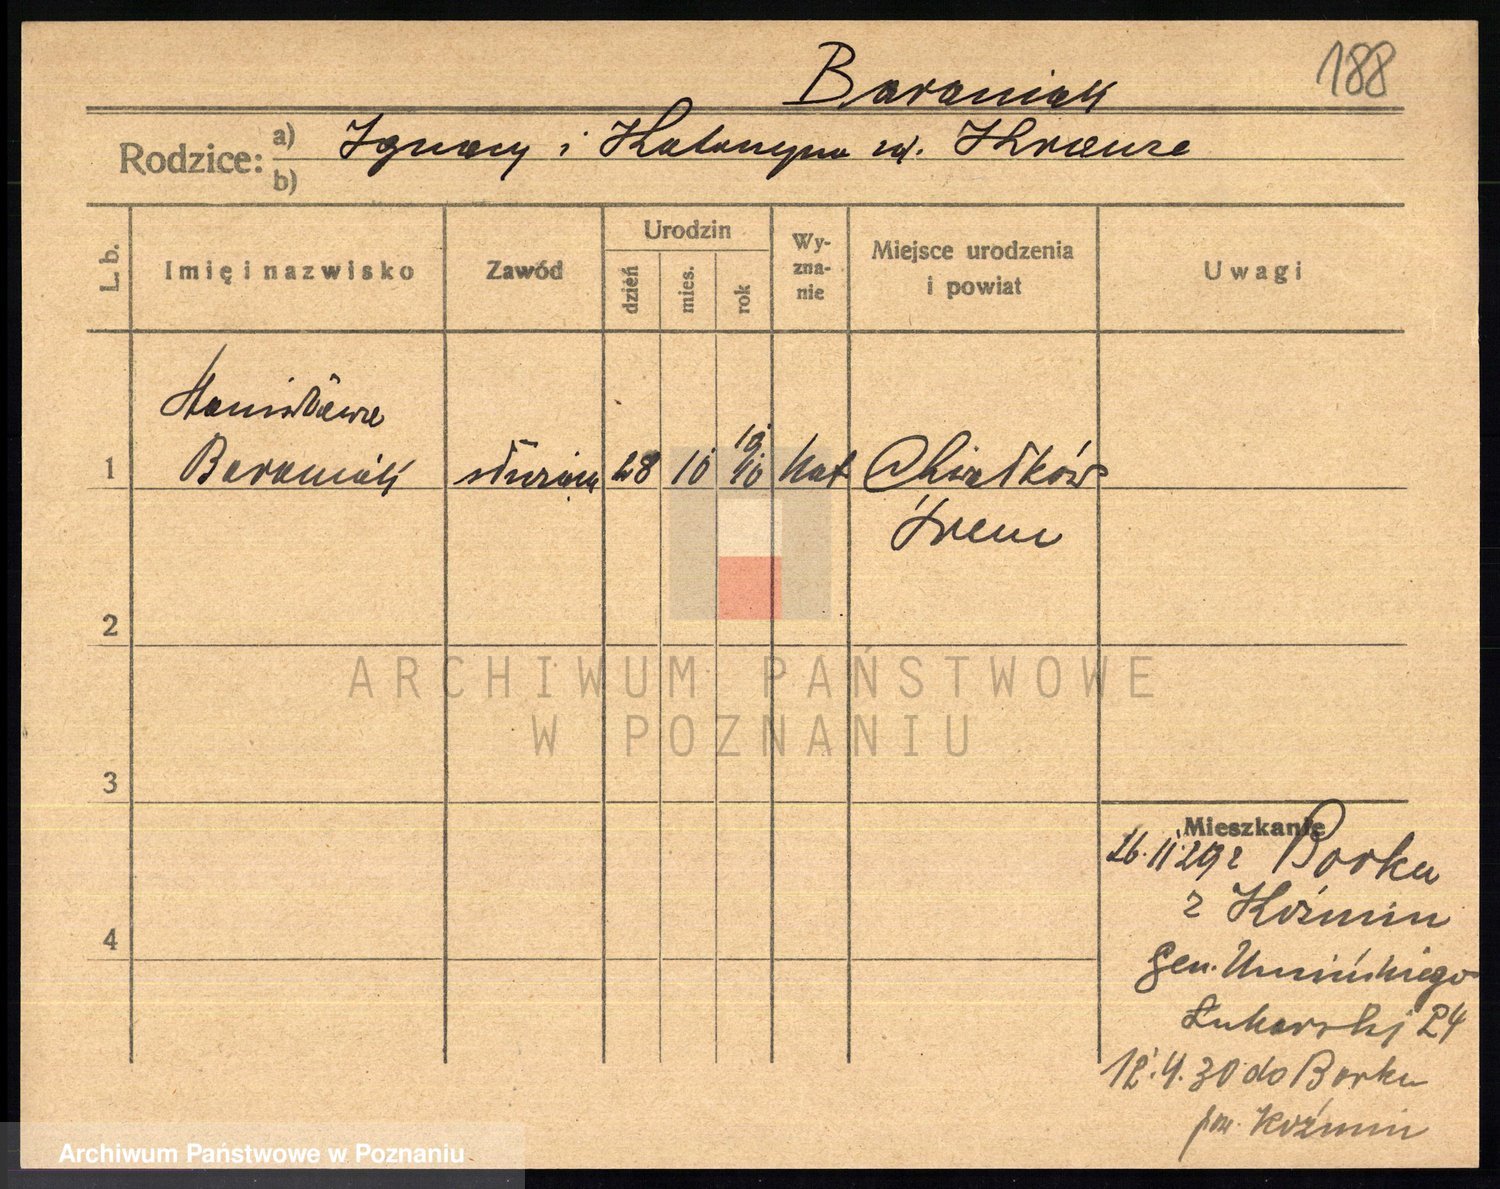 188
Baraniak
Rodzice: a) Ignacy i Katarzyna ur. Krauze
b)
L. b.
Imię i nazwisko
Zawód
Urodzin
dzień
mies.
rok
Wy-
zna-
nie
Miejsce urodzenia
i powiat
Uwagi
Stanisława
1 Baraniak służąca 28 10 1910 kat Chwałków
Śrem
2
ARCHIWUM PAŃSTWOWE
W POZNANIU
3
Mieszkanie
26.11.29 z Borku
z Koźmin
4
Gen. Umińskiego
24
12.4.30 do Borku
pow. Koźmin
Archiwum Państwowe w Poznaniu